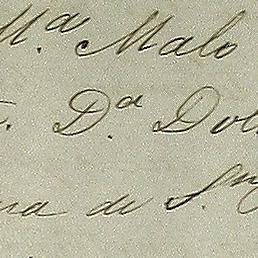 M.ª Malo
D.ª Dol
na de S.